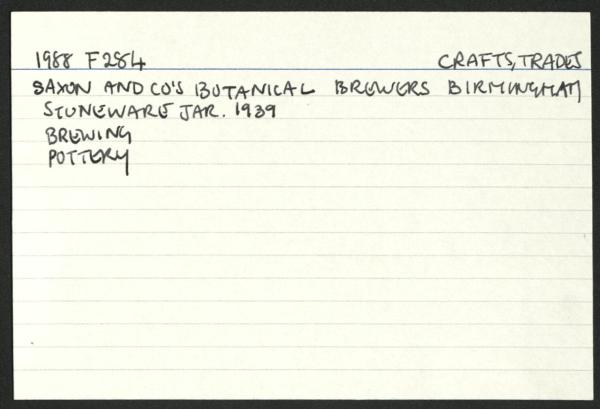 1988 F284 CRAFTS, TRADES
SAXON AND CO'S BOTANICAL BREWERS BIRMINGHAM
STONEWARE JAR. 1939
BREWING
POTTERY